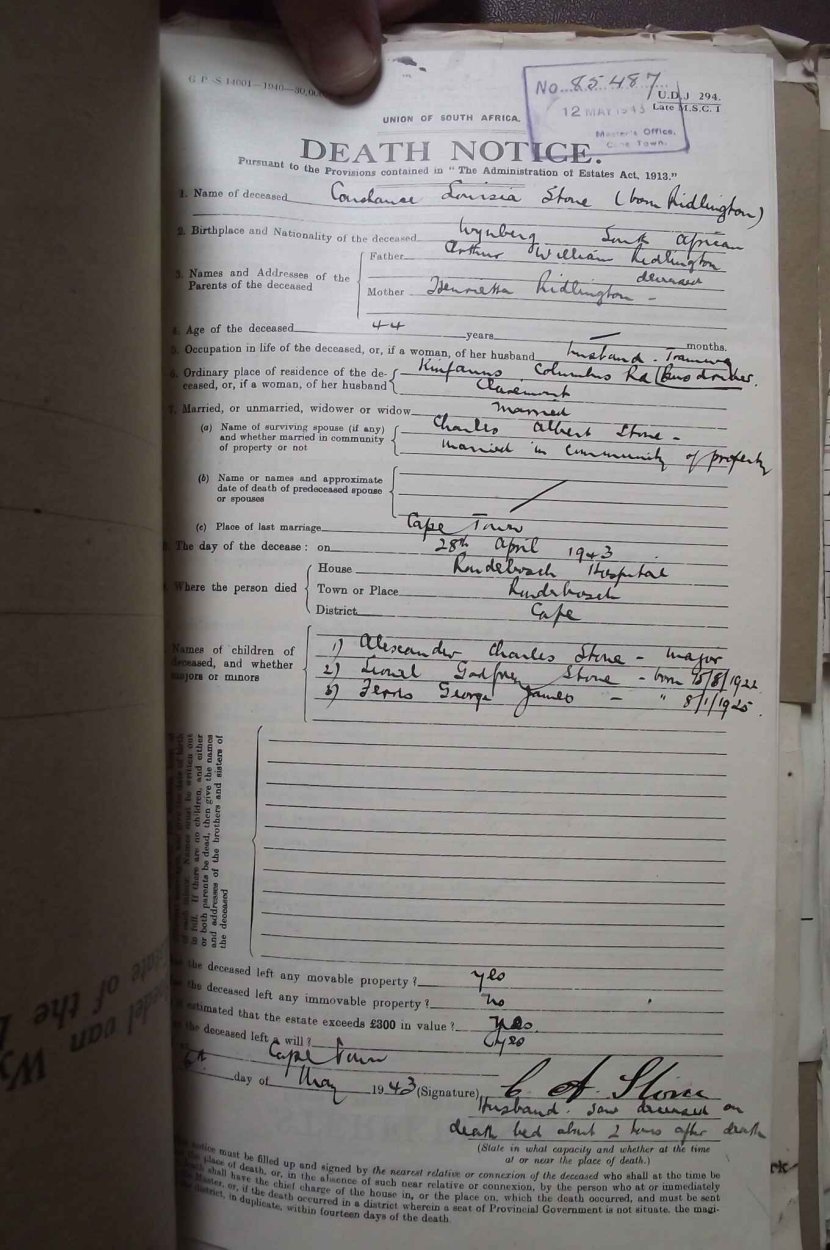 G P -S 14001—1940—30,000
No. 85487
U.D.J 294.
12 MAY 1943
Late M.S.C. 1
Master's Office,
Cape Town.
UNION OF SOUTH AFRICA.
DEATH NOTICE.
Pursuant to the Provisions contained in "The Administration of Estates Act, 1913."
1. Name of deceased Constance Louisia Stone (born Ridlington)
2. Birthplace and Nationality of the deceased Wynberg South African
3. Names and Addresses of the Parents of the deceased
Father Arthur William Ridlington
deceased
Mother Henrietta Ridlington -
4. Age of the deceased 44 years — months.
5. Occupation in life of the deceased, or, if a woman, of her husband husband - Tramway
6. Ordinary place of residence of the de- Kinfauns Columbus Rd (Bus driver.
ceased, or, if a woman, of her husband Claremont
7. Married, or unmarried, widower or widow married
(a) Name of surviving spouse (if any) Charles Albert Stone -
and whether married in community married in community of property
of property or not
(b) Name or names and approximate
date of death of predeceased spouse
or spouses
(c) Place of last marriage Cape Town
8. The day of the decease: on 28th April 1943
Where the person died
House Rondebosch Hospital
Town or Place Rondebosch
District Cape
Names of children of
deceased, and whether
majors or minors
1) Alexander Charles Stone - major
2) Lionel Godfrey Stone - born /8/1922
3) George James - " 8/1/1925.
in full. If there are no children, and either
or both parents be dead, then give the names
and addresses of the brothers and sisters of
the deceased
the deceased left any movable property? yes
the deceased left any immovable property? no
estimated that the estate exceeds £300 in value? yes.
the deceased left a will? yes
Cape Town
6th day of May 1943 (Signature) C A Stone
Husband. saw deceased on
death bed about 2 hours after death
(State in what capacity and whether at the time
at or near the place of death.)
notice must be filled up and signed by the nearest relative or connexion of the deceased who shall at the time be
the place of death, or, in the absence of such near relative or connexion, by the person who at or immediately
death shall have the chief charge of the house in, or the place on, which the death occurred, and must be sent
Master, or, if the death occurred in a district wherein a seat of Provincial Government is not situate, the magi-
district, in duplicate, within fourteen days of the death.